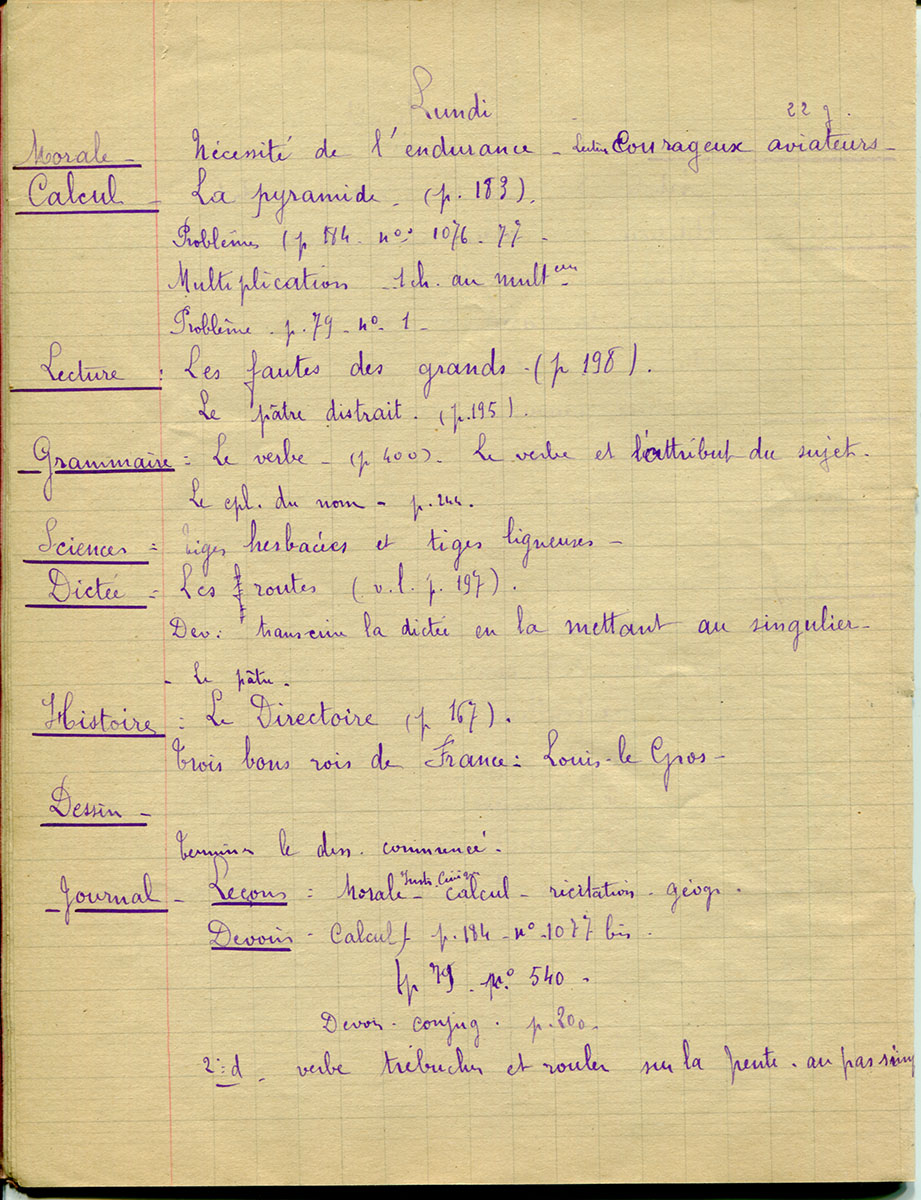 Lundi 22 j.
Morale - Nécessité de l'endurance - Lecture Courageux aviateurs -
Calcul - La pyramide - (p. 183).
Problèmes (p 184. nos 1076 - 77 -
Multiplication - 1 ch. au mult eur
Problème - p. 79 - no - 1 -
Lecture : Les fautes des grands - (p 198).
Le pâtre distrait. (p. 195).
Grammaire = Le verbe - (p 400). Le verbe et l'attribut du sujet.
Le cpl. du nom - p. 244.
Sciences = Tiges herbacées et tiges ligneuses -
Dictée = Les routes (v. l. p. 197).
Dev : transcrire la dictée en la mettant au singulier -
- Le pâtre -
Histoire = Le Directoire (p 167).
Trois bons rois de France : Louis-le Gros -
Dessin -
Terminer le dess. commencé.
Journal - Leçons : Morale - Inst. Civiq. calcul - récitation - géogr.
Devoirs - Calcul p. 184 - no - 1077 bis
(p 79 - no 540 -
Devoir - conjug. p. 200 -
2e d - verbe trébucher et rouler sur la pente - au pas simp